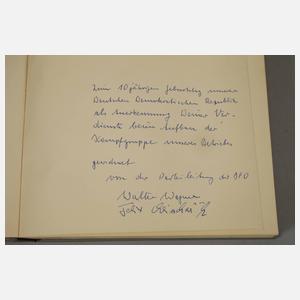 Zum 10 jährigen Geburtstag unserer
Deutschen Demokratischen Republik
als Anerkennung Deiner Ver-
dienste beim Aufbau der
Kampfgruppe unseres Betriebes
gewidmet
von der Parteileitung der BPO
Walter Wagner
Felix